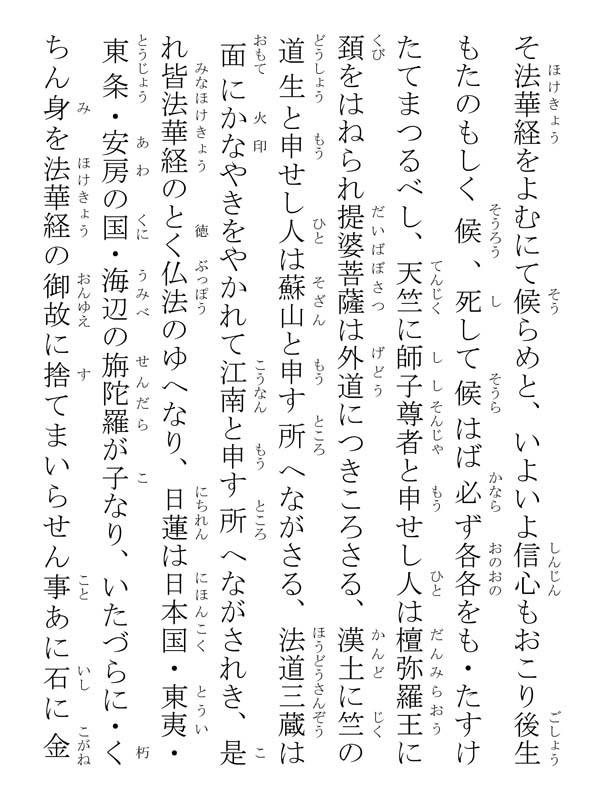 そ法華経をよむにて候らめと、いよいよ信心もおこり後生
もたのもしく候、死して候はば必ず各各をも・たすけ
たてまつるべし、天竺に師子尊者と申せし人は檀弥羅王に
頚をはねられ提婆菩薩は外道につきころさる、漢土に竺の
道生と申せし人は蘇山と申す所へながさる、法道三蔵は
面にかなやきをやかれて江南と申す所へながされき、是
れ皆法華経のとく仏法のゆへなり、日蓮は日本国・東夷・
東条・安房の国・海辺の旃陀羅が子なり、いたづらに・く
ちん身を法華経の御故に捨てまいらせん事あに石に金